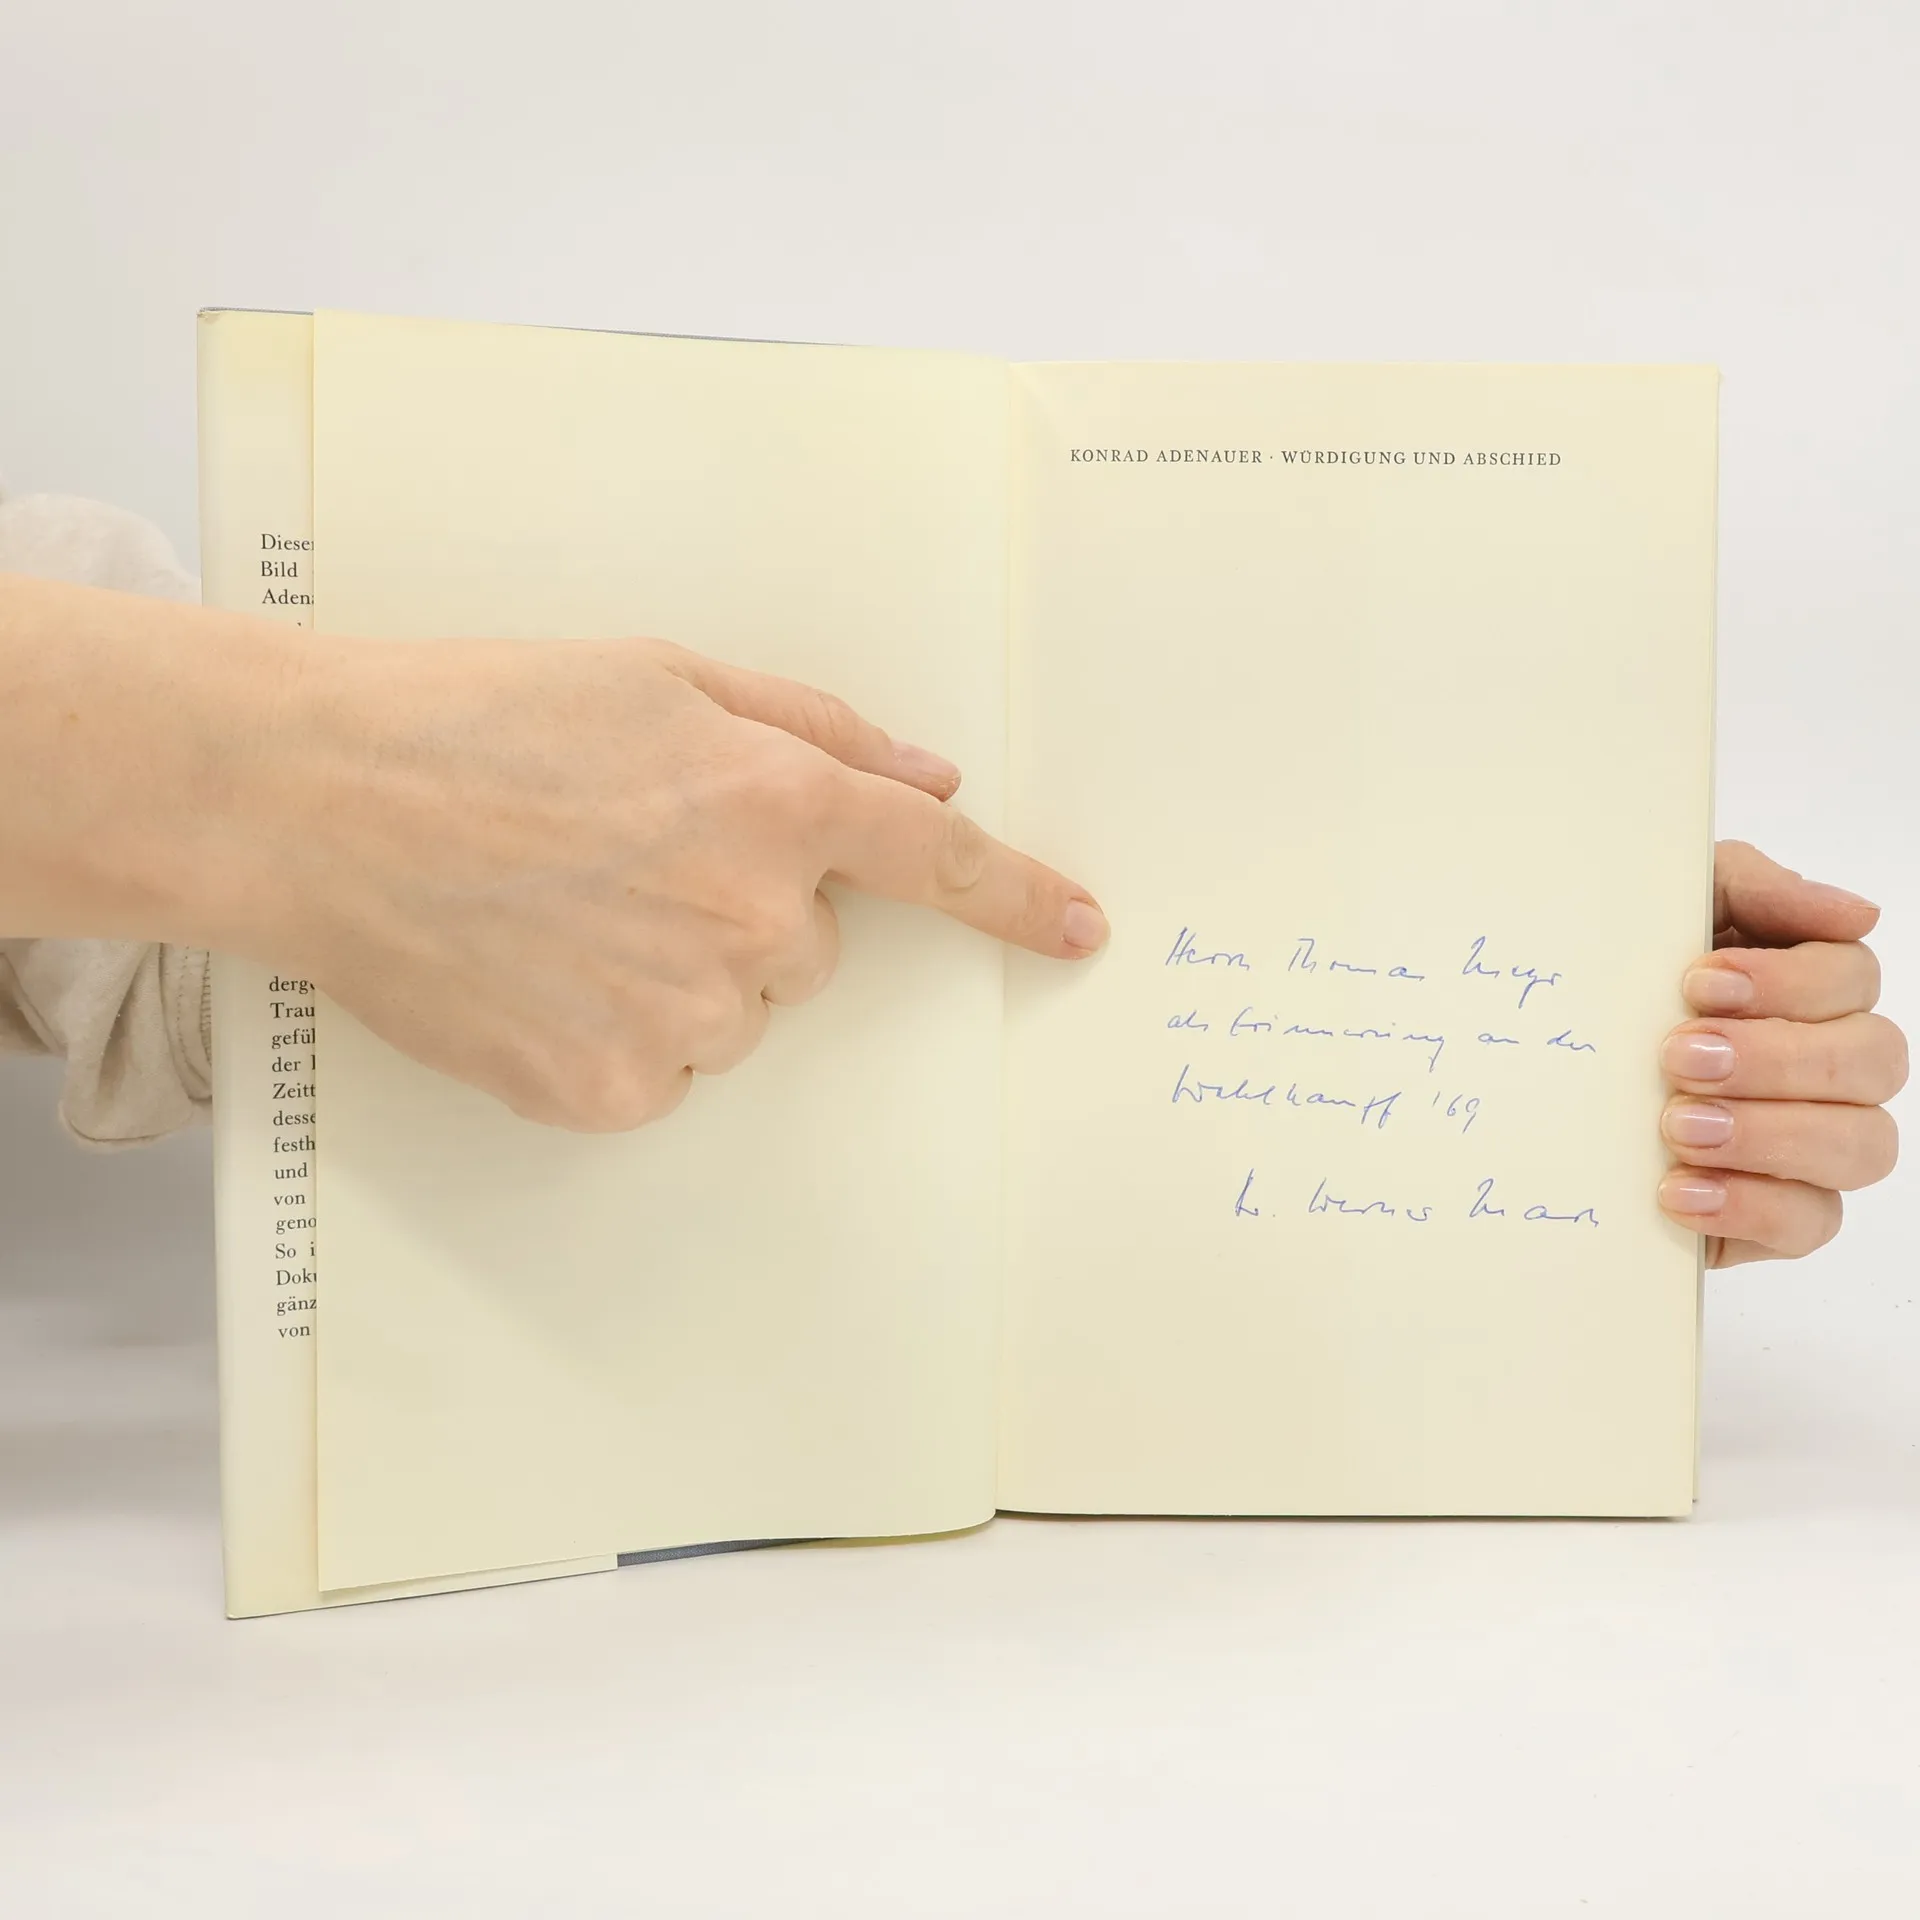 Diese
Bild
Aden
derg
Trau
gefü
der
Zeitt
desse
festh
und
von
geno
So i
Dok
gänz
von
KONRAD ADENAUER · WÜRDIGUNG UND ABSCHIED
Herrn Thomas Meyr
als Erinnerung an den
Wahlkampf '69
Dr. Werner Marx